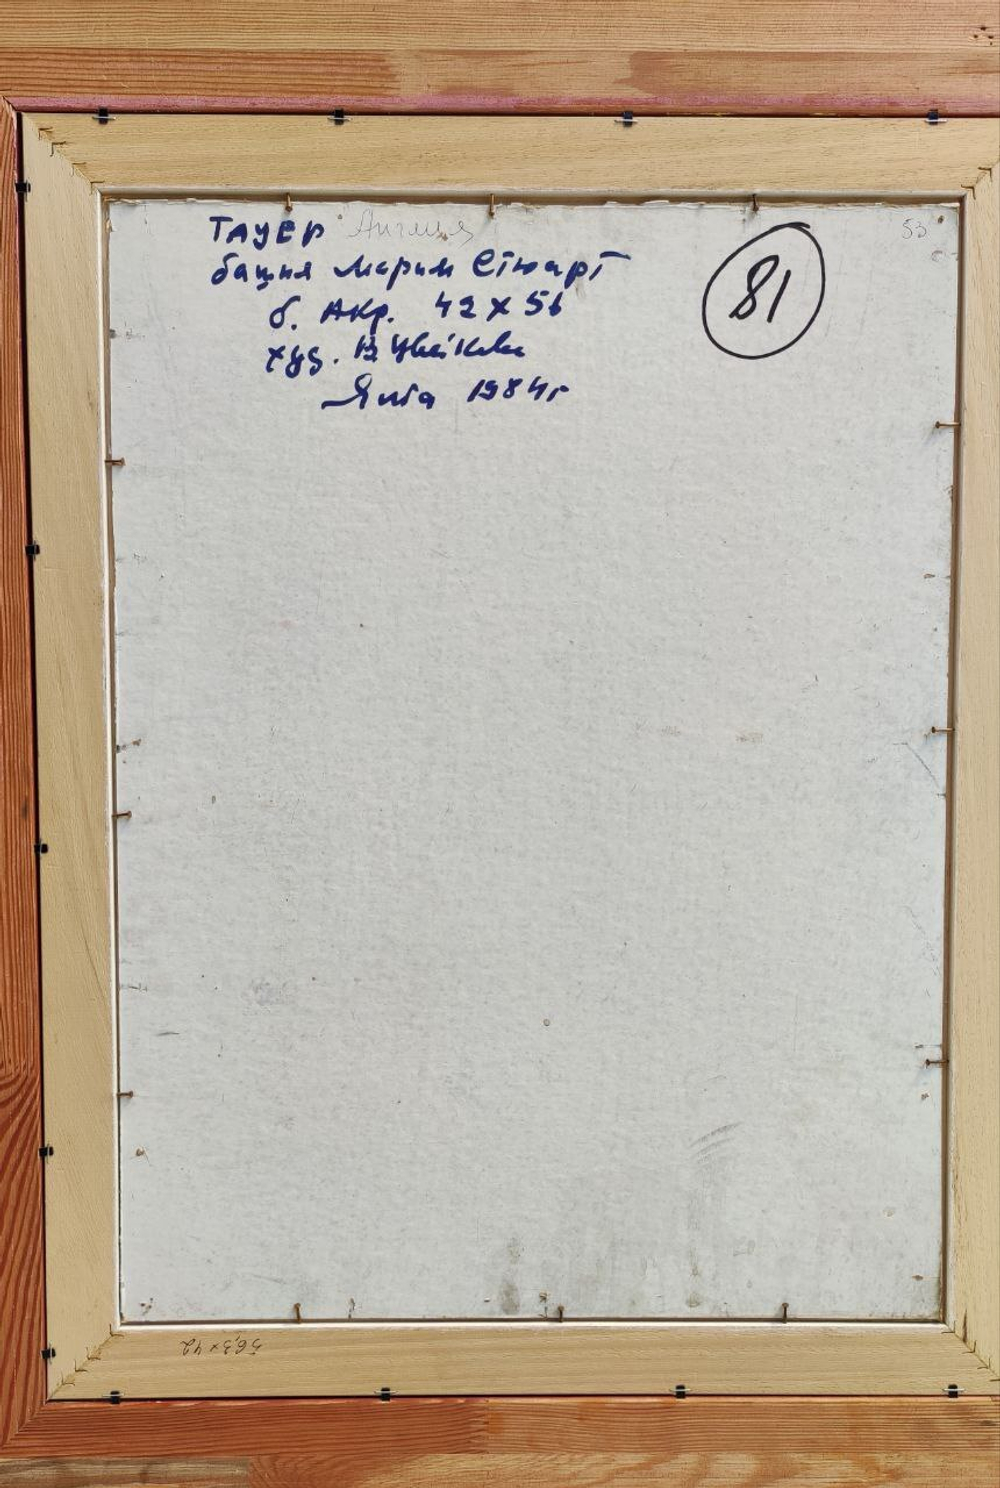 ТАУЕР Англия
башня Марии Стюарт
б. Акр. 42 х 56
худ. В Цветкова
Ялта 1984г
81
53
56,3 × 42